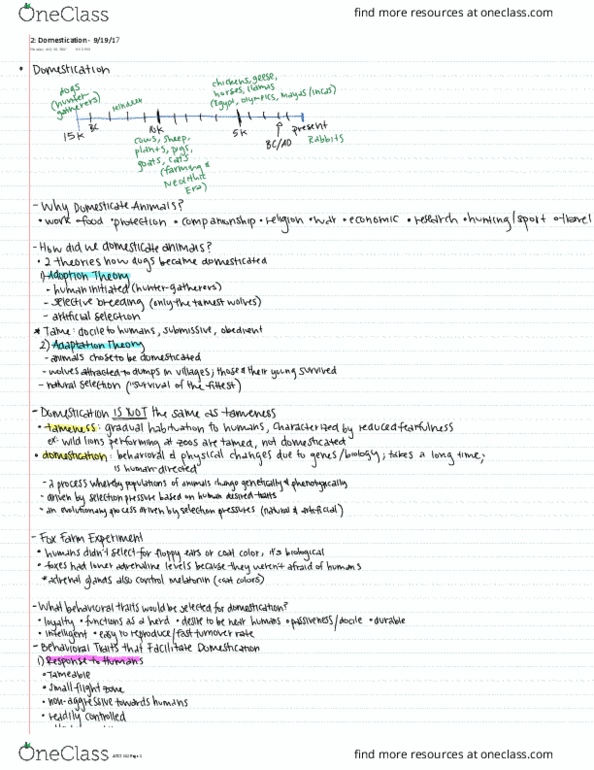 OneClass
find more resources at oneclass.com
2: Domestication - 9/19/17
• Domestication
dogs
(hunter
gatherers)
reindeer
chickens, geese,
horses, llamas
(Egypt, olympics, mayas/incas)
15K
BC
10K
5K
BC/AD
present
Rabbits
cows, sheep,
plants, pigs,
goats, cats
(farming &
Neolithic
Era)
- Why Domesticate Animals?
• work • food • protection • companionship • religion • war • economic • research • hunting/sport • travel
- How did we domesticate animals?
• 2 theories how dogs became domesticated
1) Adoption Theory
- human initiated (hunter-gatherers)
- selective breeding (only the tamest wolves)
- artificial selection
* Tame: docile to humans, submissive, obedient
2) Adaptation Theory
- animals chose to be domesticated
- wolves attracted to dumps in villages; those & their young survived
- natural selection ("survival of the fittest)
- Domestication IS NOT the same as tameness
• tameness: gradual habituation to humans, characterized by reduced fearfulness
ex: wild lions performing at zoos are tamed, not domesticated
• domestication: behavioral & physical changes due to genes/biology; takes a long time;
is human-directed
- a process whereby populations of animals change genetically & phenotypically
- driven by selection pressure based on human desired traits
- an evolutionary process driven by selection pressures (natural & artificial)
- Fox Farm Experiment
• humans didn't select for floppy ears or coat color, it's biological
• foxes had lower adrenaline levels because they weren't afraid of humans
*adrenal glands also control melatonin (coat colors)
- What behavioral traits would be selected for domestication?
• loyalty • functions as a herd • desire to be near humans • passiveness/docile • durable
• intelligent • easy to reproduce/fast turnover rate
- Behavioral Traits that Facilitate Domestication
1) Response to Humans
• Tameable
• small flight zone
• non-aggressive towards humans
• readily controlled
OneClass
Page 1
find more resources at oneclass.com